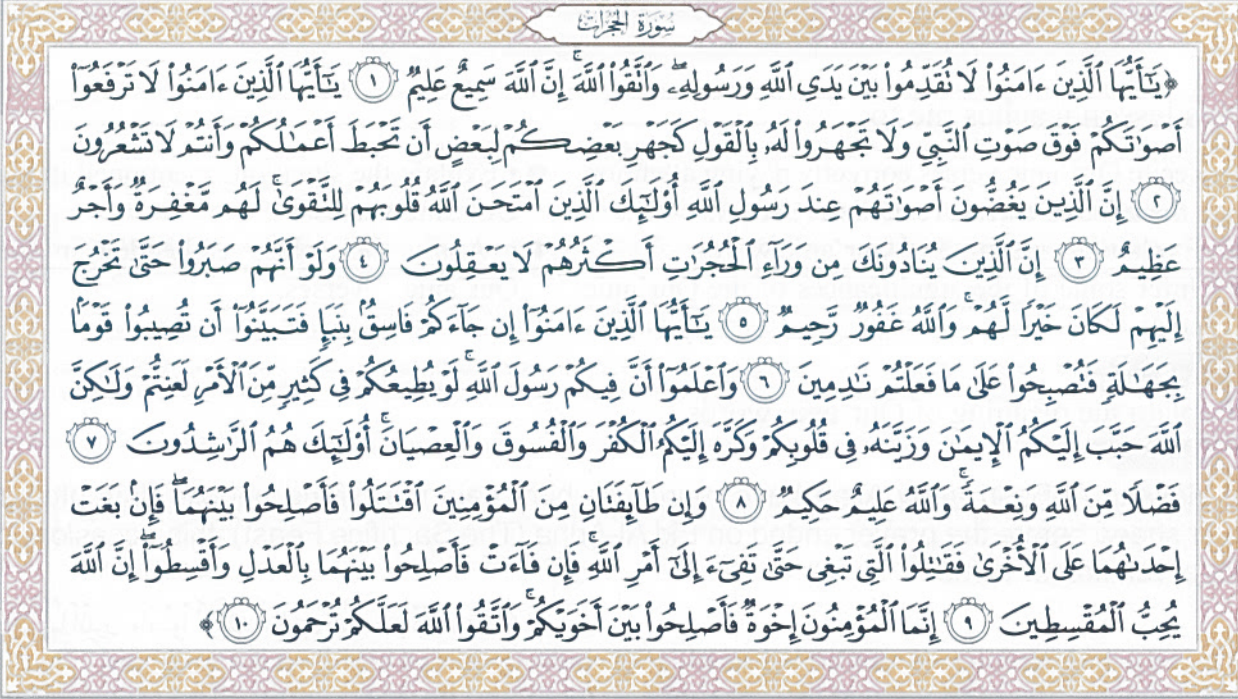 سُورَةُ الحُجُرَاتِ
﴿يَٰٓأَيُّهَا ٱلَّذِينَ ءَامَنُواْ لَا تُقَدِّمُواْ بَيْنَ يَدَيِ ٱللَّهِ وَرَسُولِهِۦۖ وَٱتَّقُواْ ٱللَّهَۚ إِنَّ ٱللَّهَ سَمِيعٌ عَلِيمٌ ١ يَٰٓأَيُّهَا ٱلَّذِينَ ءَامَنُواْ لَا تَرۡفَعُوٓاْ
أَصۡوَٰتَكُمۡ فَوۡقَ صَوۡتِ ٱلنَّبِيِّ وَلَا تَجۡهَرُواْ لَهُۥ بِٱلۡقَوۡلِ كَجَهۡرِ بَعۡضِكُمۡ لِبَعۡضٍ أَن تَحۡبَطَ أَعۡمَٰلُكُمۡ وَأَنتُمۡ لَا تَشۡعُرُونَ
٢ إِنَّ ٱلَّذِينَ يَغُضُّونَ أَصۡوَٰتَهُمۡ عِندَ رَسُولِ ٱللَّهِ أُوْلَٰٓئِكَ ٱلَّذِينَ ٱمۡتَحَنَ ٱللَّهُ قُلُوبَهُمۡ لِلتَّقۡوَىٰۚ لَهُم مَّغۡفِرَةٞ وَأَجۡرٌ
عَظِيمٌ ٣ إِنَّ ٱلَّذِينَ يُنَادُونَكَ مِن وَرَآءِ ٱلۡحُجُرَٰتِ أَكۡثَرُهُمۡ لَا يَعۡقِلُونَ ٤ وَلَوۡ أَنَّهُمۡ صَبَرُواْ حَتَّىٰ تَخۡرُجَ
إِلَيۡهِمۡ لَكَانَ خَيۡرٗا لَّهُمۡۚ وَٱللَّهُ غَفُورٞ رَّحِيمٞ ٥ يَٰٓأَيُّهَا ٱلَّذِينَ ءَامَنُوٓاْ إِن جَآءَكُمۡ فَاسِقُۢ بِنَبَإٖ فَتَبَيَّنُوٓاْ أَن تُصِيبُواْ قَوۡمَۢا
بِجَهَٰلَةٖ فَتُصۡبِحُواْ عَلَىٰ مَا فَعَلۡتُمۡ نَٰدِمِينَ ٦ وَٱعۡلَمُوٓاْ أَنَّ فِيكُمۡ رَسُولَ ٱللَّهِۚ لَوۡ يُطِيعُكُمۡ فِي كَثِيرٖ مِّنَ ٱلۡأَمۡرِ لَعَنِتُّمۡ وَلَٰكِنَّ
ٱللَّهَ حَبَّبَ إِلَيۡكُمُ ٱلۡإِيمَٰنَ وَزَيَّنَهُۥ فِي قُلُوبِكُمۡ وَكَرَّهَ إِلَيۡكُمُ ٱلۡكُفۡرَ وَٱلۡفُسُوقَ وَٱلۡعِصۡيَانَۚ أُوْلَٰٓئِكَ هُمُ ٱلرَّٰشِدُونَ ٧
فَضۡلٗا مِّنَ ٱللَّهِ وَنِعۡمَةٗۚ وَٱللَّهُ عَلِيمٌ حَكِيمٞ ٨ وَإِن طَآئِفَتَانِ مِنَ ٱلۡمُؤۡمِنِينَ ٱقۡتَتَلُواْ فَأَصۡلِحُواْ بَيۡنَهُمَاۖ فَإِنۢ بَغَتۡ
إِحۡدَىٰهُمَا عَلَى ٱلۡأُخۡرَىٰ فَقَٰتِلُواْ ٱلَّتِي تَبۡغِي حَتَّىٰ تَفِيٓءَ إِلَىٰٓ أَمۡرِ ٱللَّهِۚ فَإِن فَآءَتۡ فَأَصۡلِحُواْ بَيۡنَهُمَا بِٱلۡعَدۡلِ وَأَقۡسِطُوٓاْۖ إِنَّ ٱللَّهَ
يُحِبُّ ٱلۡمُقۡسِطِينَ ٩ إِنَّمَا ٱلۡمُؤۡمِنُونَ إِخۡوَةٞ فَأَصۡلِحُواْ بَيۡنَ أَخَوَيۡكُمۡۚ وَٱتَّقُواْ ٱللَّهَ لَعَلَّكُمۡ تُرۡحَمُونَ ١٠﴾